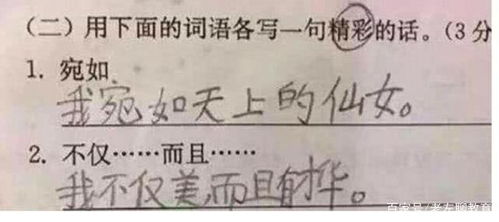 （二）用下面的词语各写一句精彩的话。（3分
1. 宛如
我宛如天上的仙女。
2. 不仅……而且……
我不仅美,而且有才华。
百家号/老左聊教育